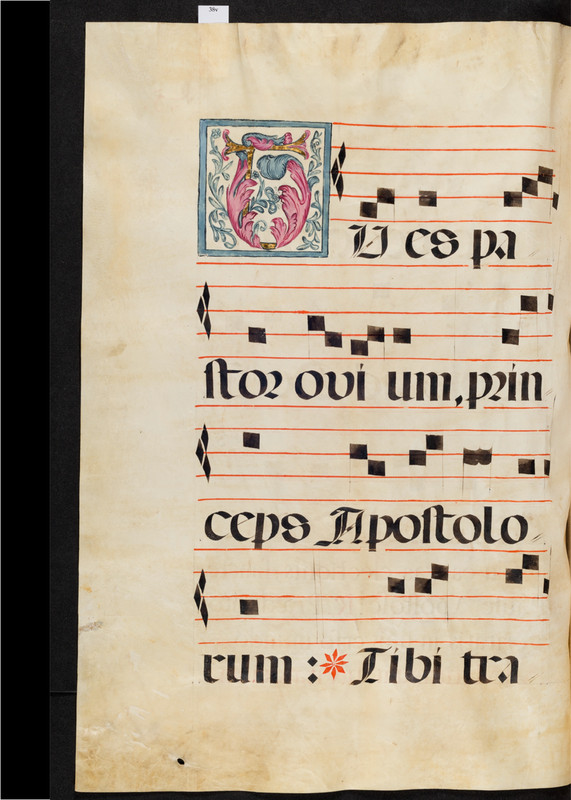 38v
TU es pa
ſtor ovi um, prin
ceps Apoſtolo
rum : Tibi tra